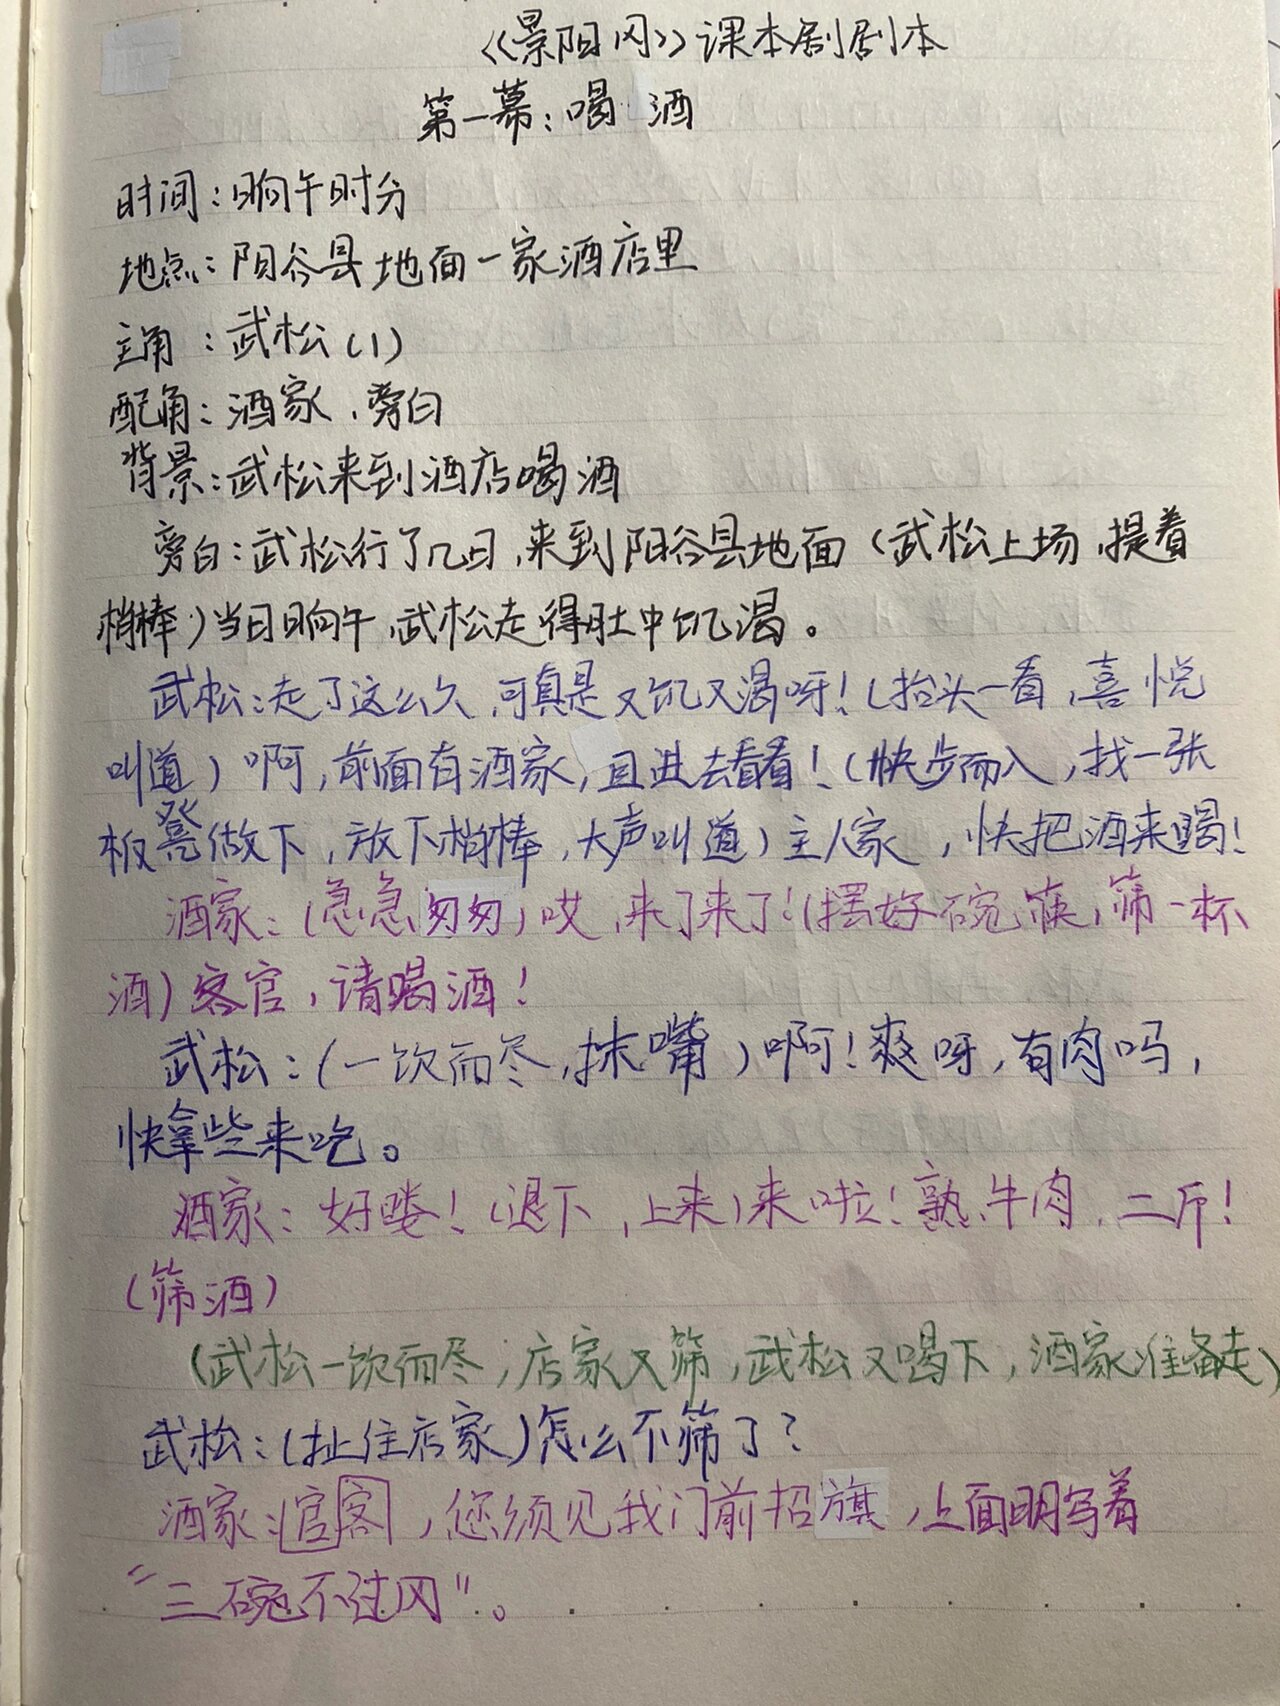 《景阳冈》课本剧剧本
第一幕：喝酒
时间：晌午时分
地点：阳谷县地面一家酒店里
主角：武松（1）
配角：酒家、旁白
背景：武松来到酒店喝酒
旁白：武松行了几日，来到阳谷县地面（武松上场，提着
梢棒）当日晌午，武松走得肚中饥渴。
武松：走了这么久，可真是又饥又渴呀！（抬头一看，喜悦
叫道）啊，前面有酒家，且进去看看！（快步而入，找一张
板凳做下，放下梢棒，大声叫道）主人家，快把酒来喝！
酒家：（急急匆匆）哎，来了来了！（摆好碗筷，筛一杯
酒）客官，请喝酒！
武松：（一饮而尽，抹嘴）啊！爽呀，有肉吗，
快拿些来吃。
酒家：好喽！（退下，上来）来啦！熟牛肉，二斤！
（筛酒）
（武松一饮而尽，店家又筛，武松又喝下，酒家准备走）
武松：（扯住店家）怎么不筛了？
酒家：官客，您须见我门前招旗，上面明写着
“三碗不过冈”。